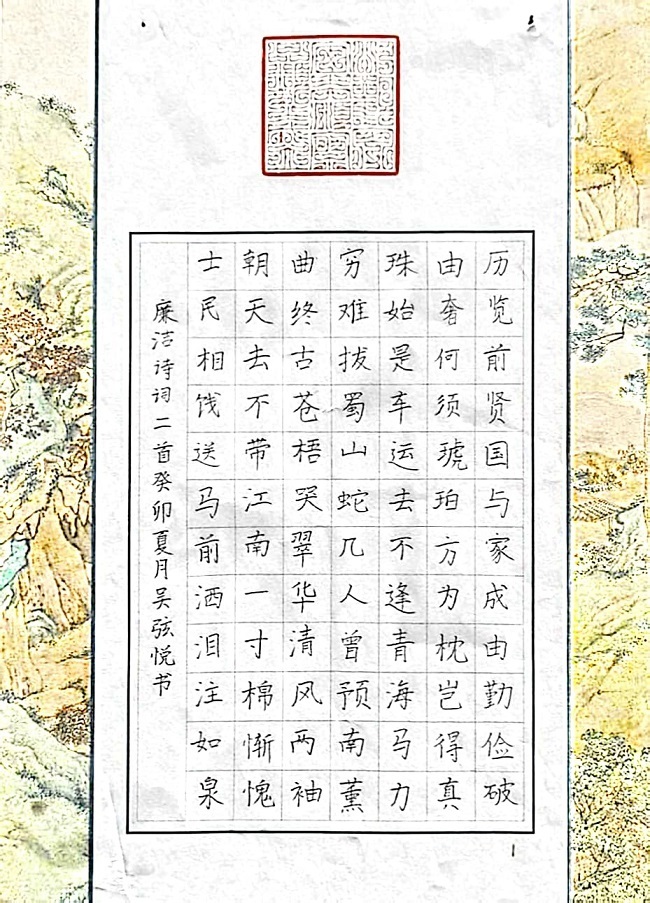 历览前贤国与家成由勤俭破
由奢何须琥珀方为枕岂得真
珠始是车运去不逢青海马力
穷难拔蜀山蛇几人曾预南薰
曲终古苍梧哭翠华清风两袖
朝天去不带江南一寸棉惭愧
士民相饯送马前洒泪注如泉
廉洁诗词二首癸卯夏月吴弦悦书